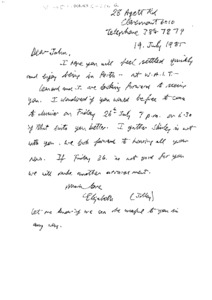 28 Agett Rd
Claremont 6010
Telephone 384 7879
19. July 1985
Dear John,
I hope you will feel settled quickly
and enjoy being in Perth - not W.A.I.T. -
Leonard and I are looking forward to seeing
you. I wondered if you would be free to come
to dinner on Friday 26th July 7 p.m. or 6.30
if that suits you better. I gather Shirley is not
with you. We look forward to hearing all your
news. If Friday 26. is not good for you
we will make another arrangement.
much love
Elizabeth (Jolley)
Let me know if we can be useful to you in
any way.